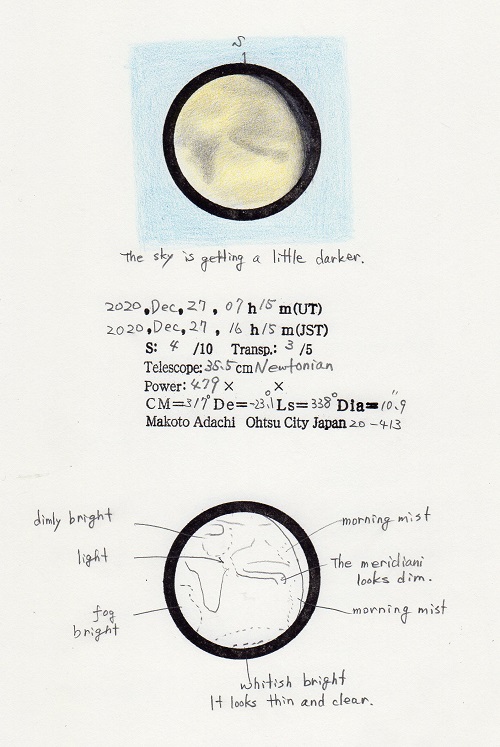 S
The sky is getting a little darker.
2020, Dec, 27, 07 h 15 m(UT)
2020, Dec, 27, 16 h 15 m(JST)
S: 4 /10 Transp.: 3 /5
Telescope: 35.5 cm Newtonian
Power: 479 × ×
CM=317° De=-23.1° Ls=338° Dia=10.9"
Makoto Adachi Ohtsu City Japan 20-413
dimly bright
morning mist
light
The meridiani
looks dim.
fog
bright
morning mist
whitish bright
It looks thin and clear.